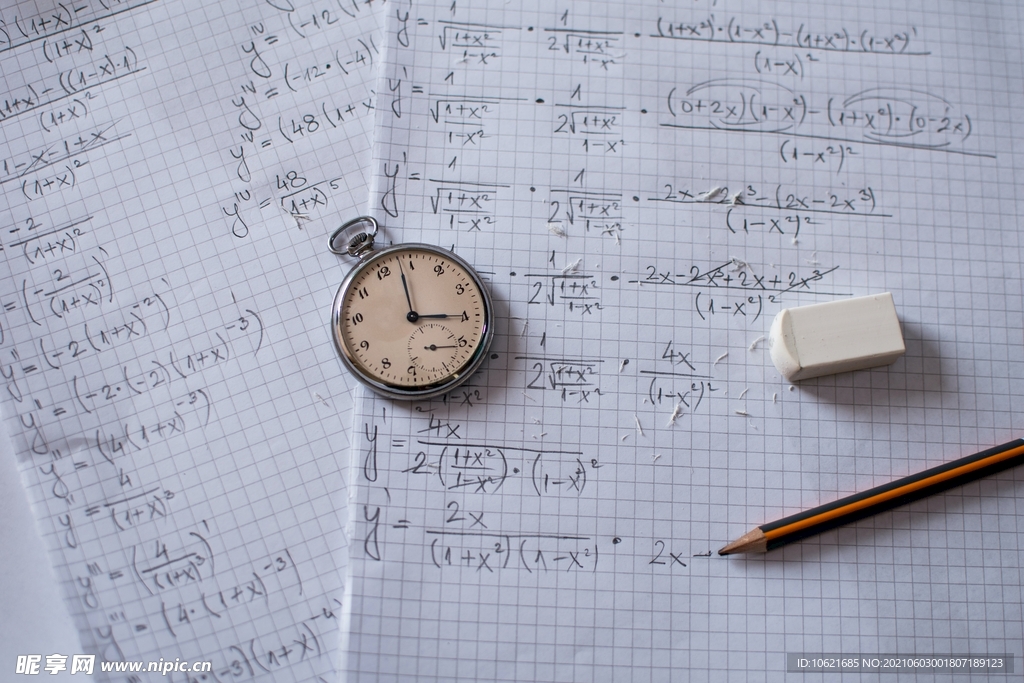 (1+x)²
(1+x) - ((1-x)·1)
(1+x)²
1-x-1+x
(1+x)²
-2
(1+x)²
= (-2/(1+x)²)'
= (-2(1+x)⁻²)'
y'' = (-2·(-2)(1+x)⁻³)
y'' = (4(1+x)⁻³)
y'' = 4/(1+x)³
y''' = (4/(1+x)³)'
y''' = (4·(1+x)⁻³)
·(-3)(1+x)⁻⁴
yⁱᵛ = (-12(1+
yⁱᵛ = (-12·(-4)
yⁱᵛ = (48(1+x
yⁱᵛ = 48/(1+x)⁵
y' = 1/√((1+x²)/(1-x²)) · 1/(2√((1+x²)/(1-x²))) · ((1+x²)'·(1-x²)-(1+x²)·(1-x²)')/(1-x)²
y' = 1/√((1+x²)/(1-x²)) · 1/(2√((1+x²)/(1-x²))) · ((0+2x)(1-x²)-(1+x²)·(0-2x))/(1-x²)²
y' = 1/√((1+x²)/(1-x²)) · 1/(2√((1+x²)/(1-x²))) · (2x-2x³-(2x-2x³))/(1-x²)²
· 1/(2√((1+x²)/(1-x²))) · (2x-2x³+2x+2x³)/(1-x²)²
· 1/(2√((1+x²)/(1-x²))) · 4x/(1-x²)²
1-x²
y' = 4x/(2·((1+x²)/(1-x²))·(1-x²)²)
y' = 2x/((1+x²)(1-x²)) · 2x -
12 1 2 3 4 5 6 8 9 10 11
昵享网 www.nipic.cn
ID:10621685 NO:20210603001807189123